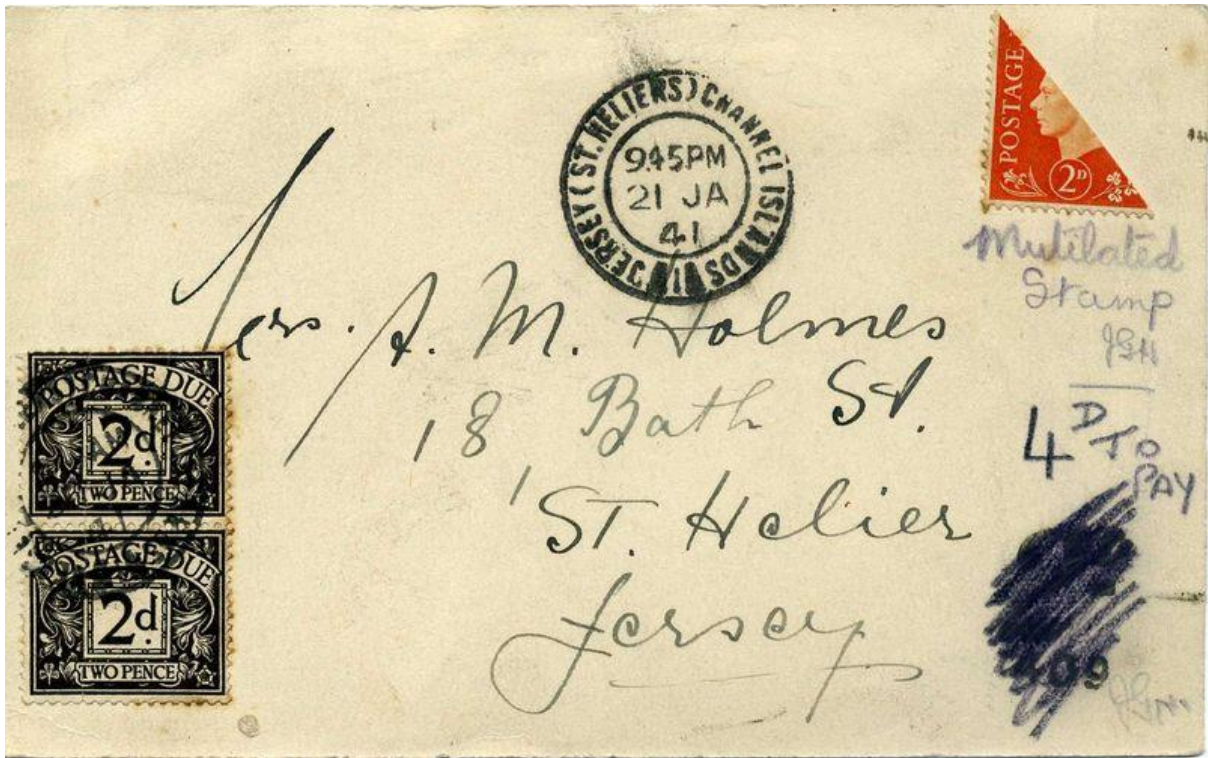 POSTAGE
2D
JERSEY (ST. HELIERS) CHANNEL ISLANDS
9.45PM
21 JA
41
Mutilated
Stamp
JGH
4D TO
PAY
Mrs. A. M. Holmes
18 Bath St.
St. Helier
Jersey
POSTAGE DUE
2d.
TWO PENCE
POSTAGE DUE
2d.
TWO PENCE